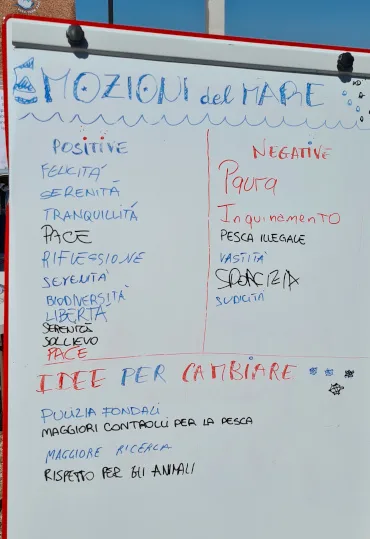 EMOZIONI del MARE
POSITIVE
FELICITÀ
SERENITÀ
TRANQUILLITÀ
PACE
RIFLESSIONE
SERENITÀ
BIODIVERSITÀ
LIBERTÀ
SERENITÀ
SOLLIEVO
PACE
NEGATIVE
Paura
Inquinamento
PESCA ILLEGALE
VASTITÀ
SPORCIZIA
SUDICITÀ
IDEE PER CAMBIARE
PULIZIA FONDALI
MAGGIORI CONTROLLI PER LA PESCA
MAGGIORE RICERCA
RISPETTO PER GLI ANIMALI